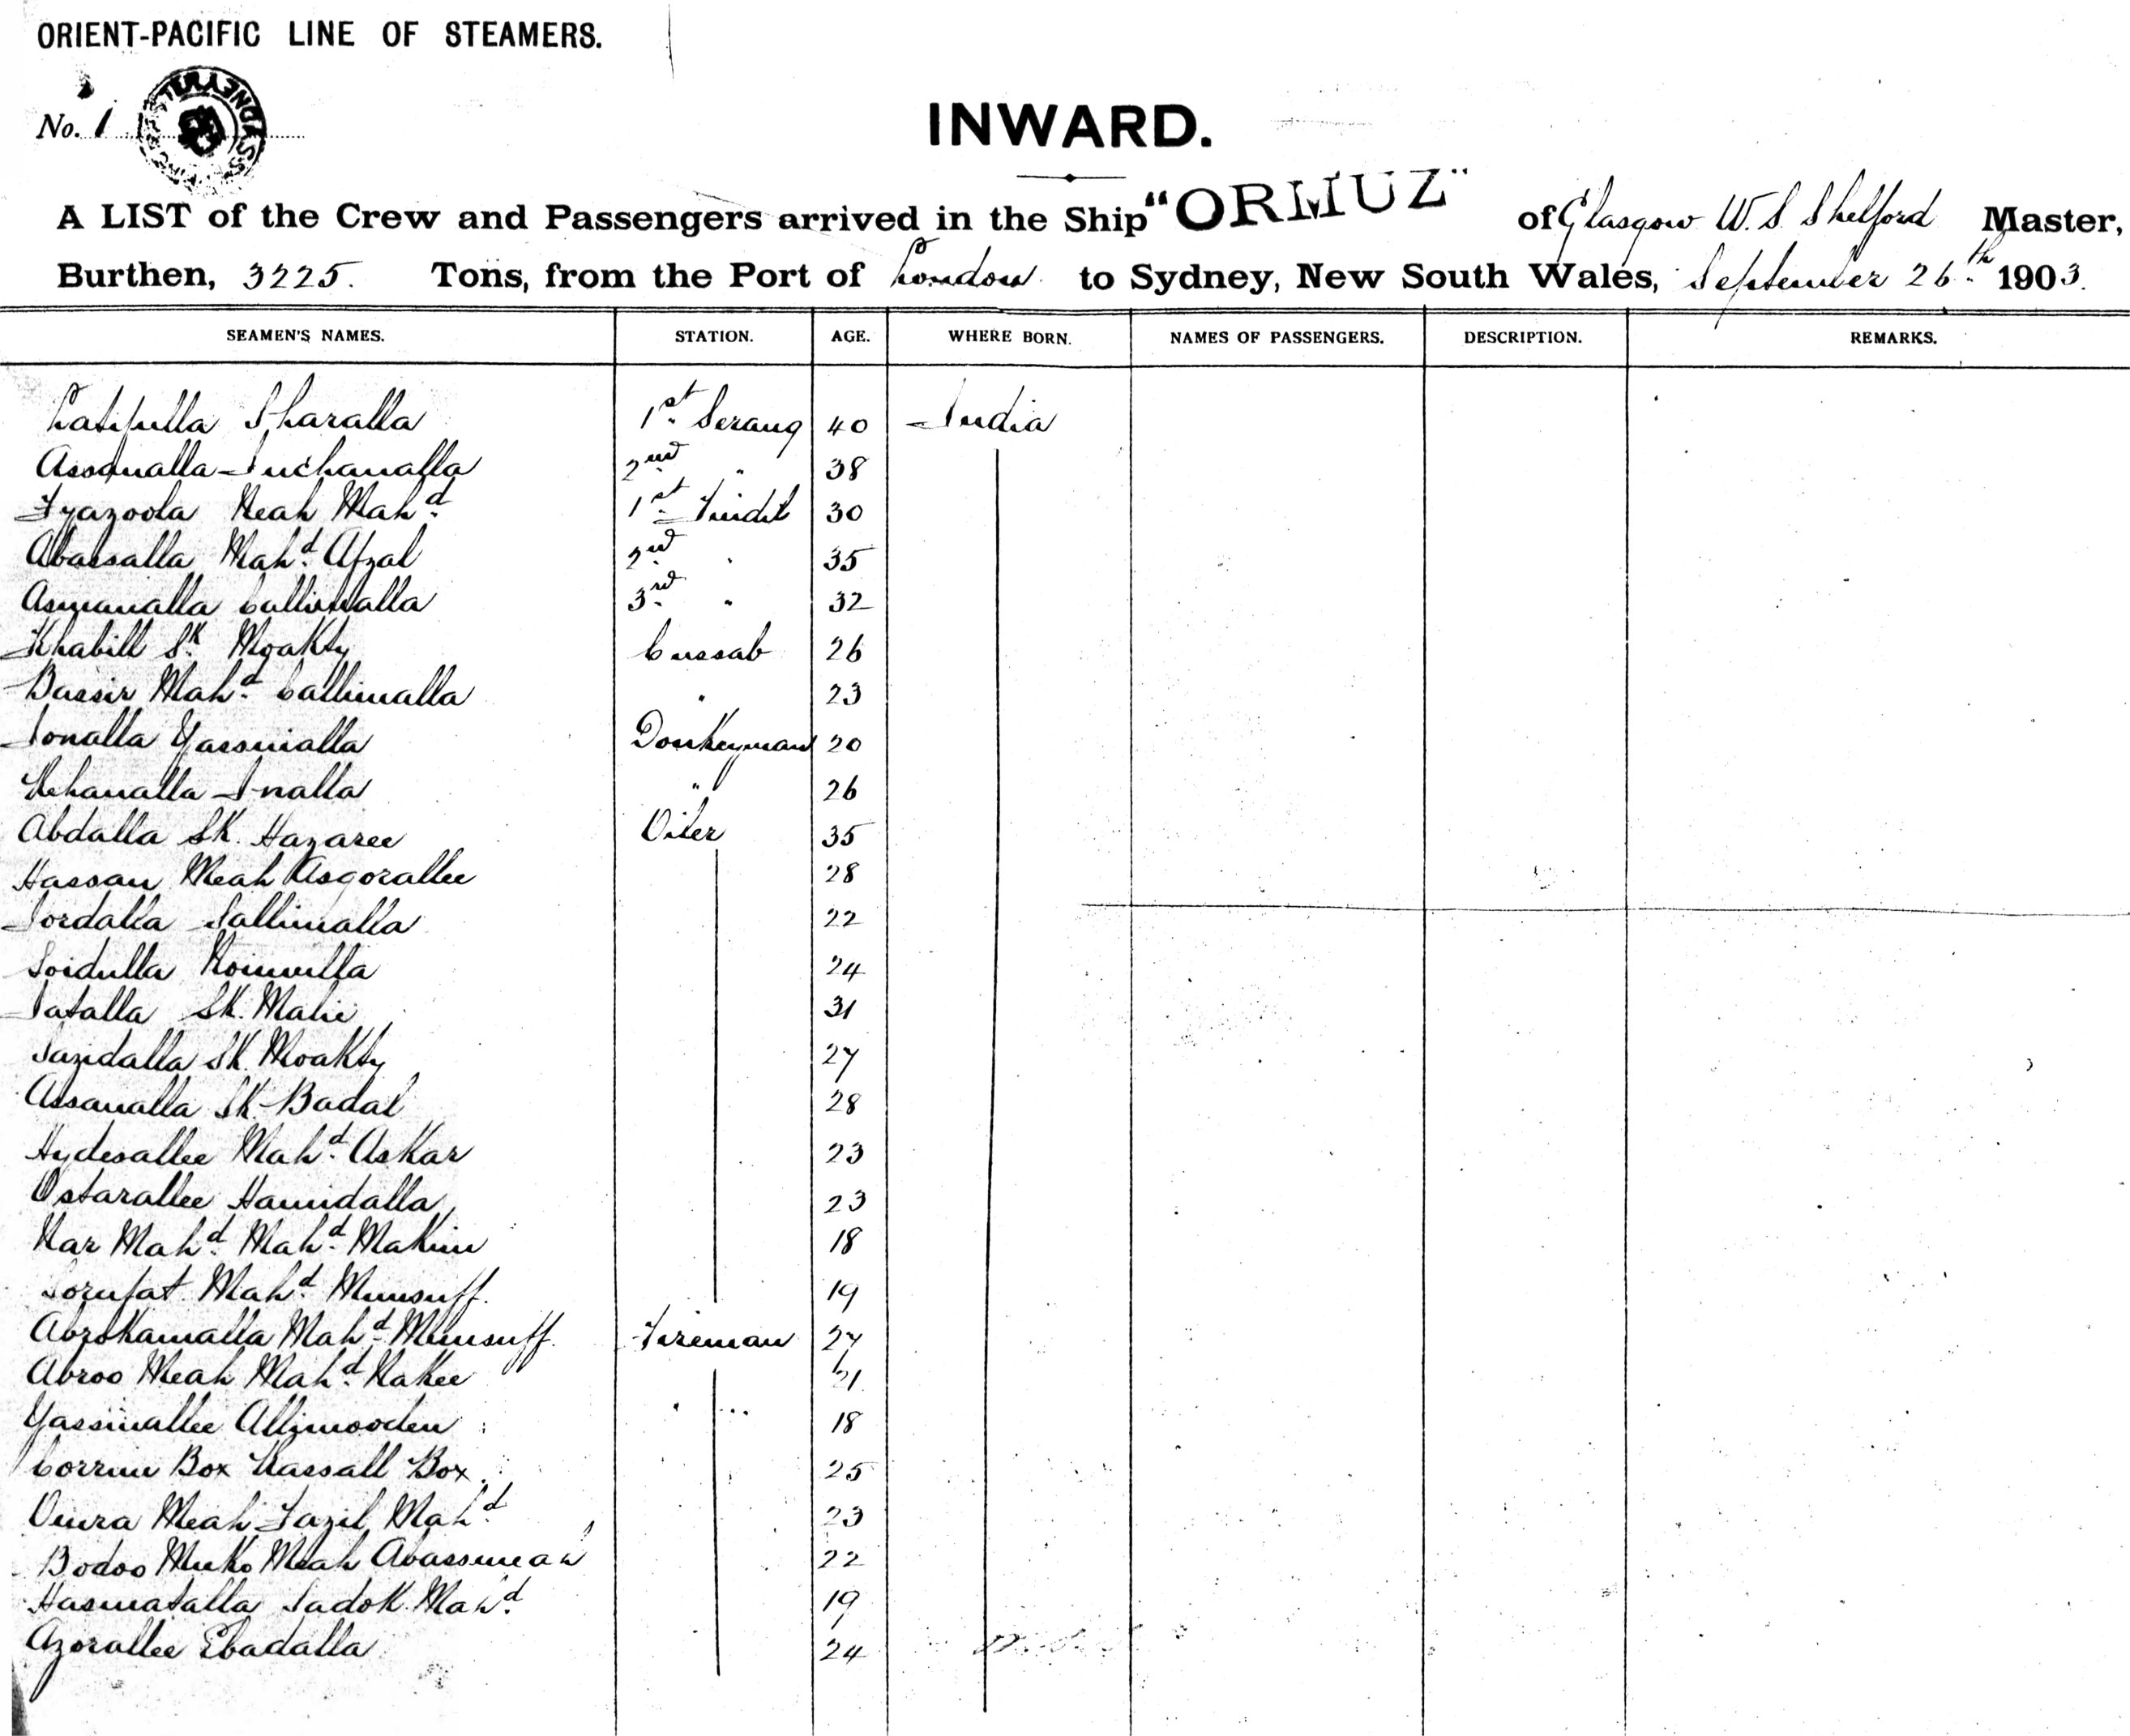 ORIENT-PACIFIC LINE OF STEAMERS.
No. 1
SYDNEY
INWARD.
A LIST of the Crew and Passengers arrived in the Ship "ORMUZ" of Glasgow W. S. Shelford Master,
Burthen, 3225. Tons, from the Port of London to Sydney, New South Wales, September 26th 1903.
SEAMEN'S NAMES. STATION. AGE. WHERE BORN. NAMES OF PASSENGERS. DESCRIPTION. REMARKS.
Latifulla Sharalla 1st Serang 40 India
Assanalla 2nd " 38
Fyazoola Neah Mahd 1st Tindil 30
Abassalla Mahd Afzal 2nd " 35
Asmanalla Callimalla 3rd " 32
Khabill Sk Moakty Cussab 26
Bassir Mahd Callimalla " 23
Sonalla Yassinalla Donkeyman 20
Rehanalla Inalla " 26
Abdalla SK. Hazaree Oiler 35
Hassan Meah Asgorallee 28
Sordalla Sallimalla 22
Soidulla 24
Satalla SK. Malie 31
Sazidalla SK. Moakty 27
Assanalla SK. Badal 28
Hyderallee Mahd Askar 23
Ostarallee Hamidalla 23
Nar Mahd Mahd Makim 18
Mahd Munsuff. 19
Abrokamalla Mahd Munsuff. Fireman 27
Abroo Meah Mahd Nakee 21
Yassinallee Allimooden 18
Corrim Box Rassall Box 25
Omra Meah Fazil Mahd 23
Bodoo Meah 22
Hasmatalla Sadok Mahd 19
Azorallee Ebadalla 24